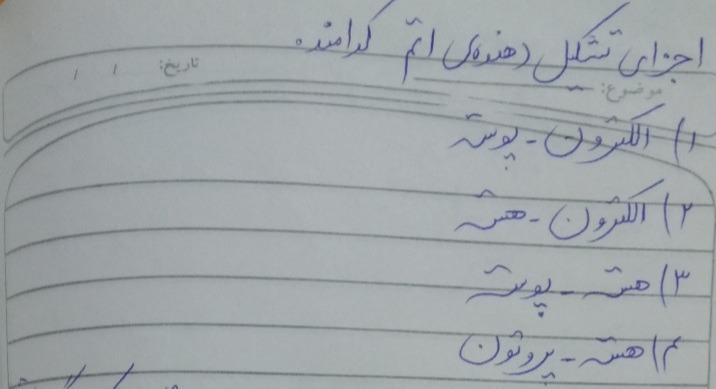 اجزای تشکیل دهنده‌ی اتم کدامند.
تاریخ: / /
موضوع:
۱) الکترون - پوسته
۲) الکترون - هسته
۳) هسته - پوسته
۴) هسته - پروتون